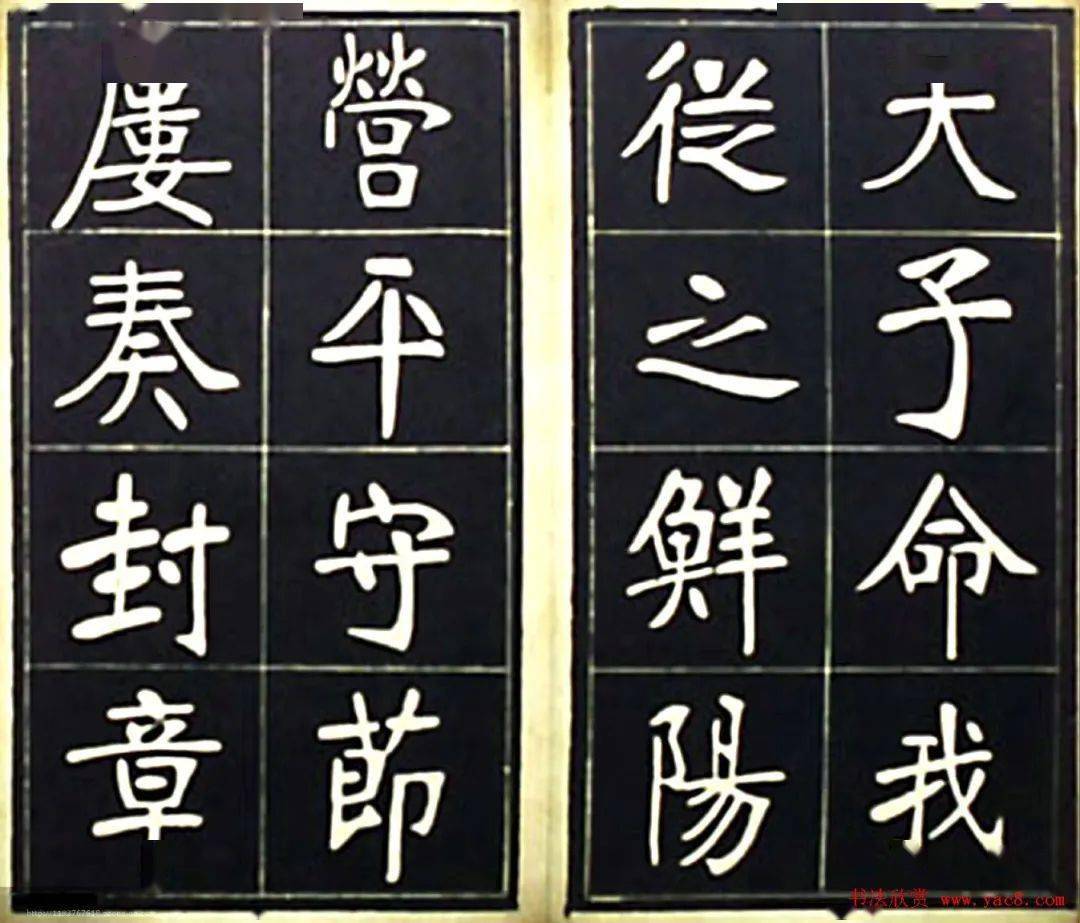 大子命我
從之鮮陽
營平守節
屢奏封章
书法欣赏 www.yac8.com